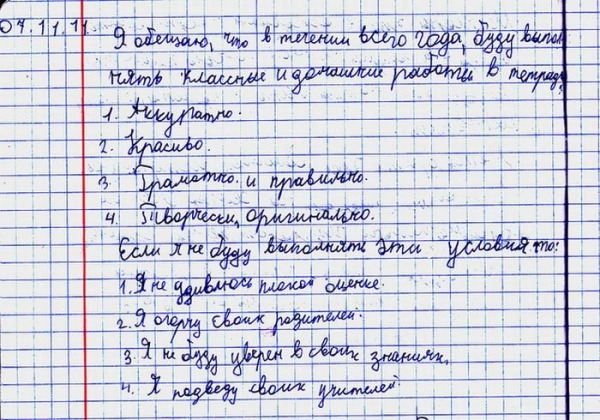 07.11.11
Я обещаю, что в течении всего года, буду выпол
нять классные и домашние работы в тетради:
1. Аккуратно.
2. Красиво.
3. Грамотно и правильно.
4. Творчески, оригинально.
Если я не буду выполнять эти условия то:
1. Я не удивлюсь плохой оценке.
2. Я огорчу своих родителей.
3. Я не буду уверен в своих знаниях.
4. Я подведу своих учителей.